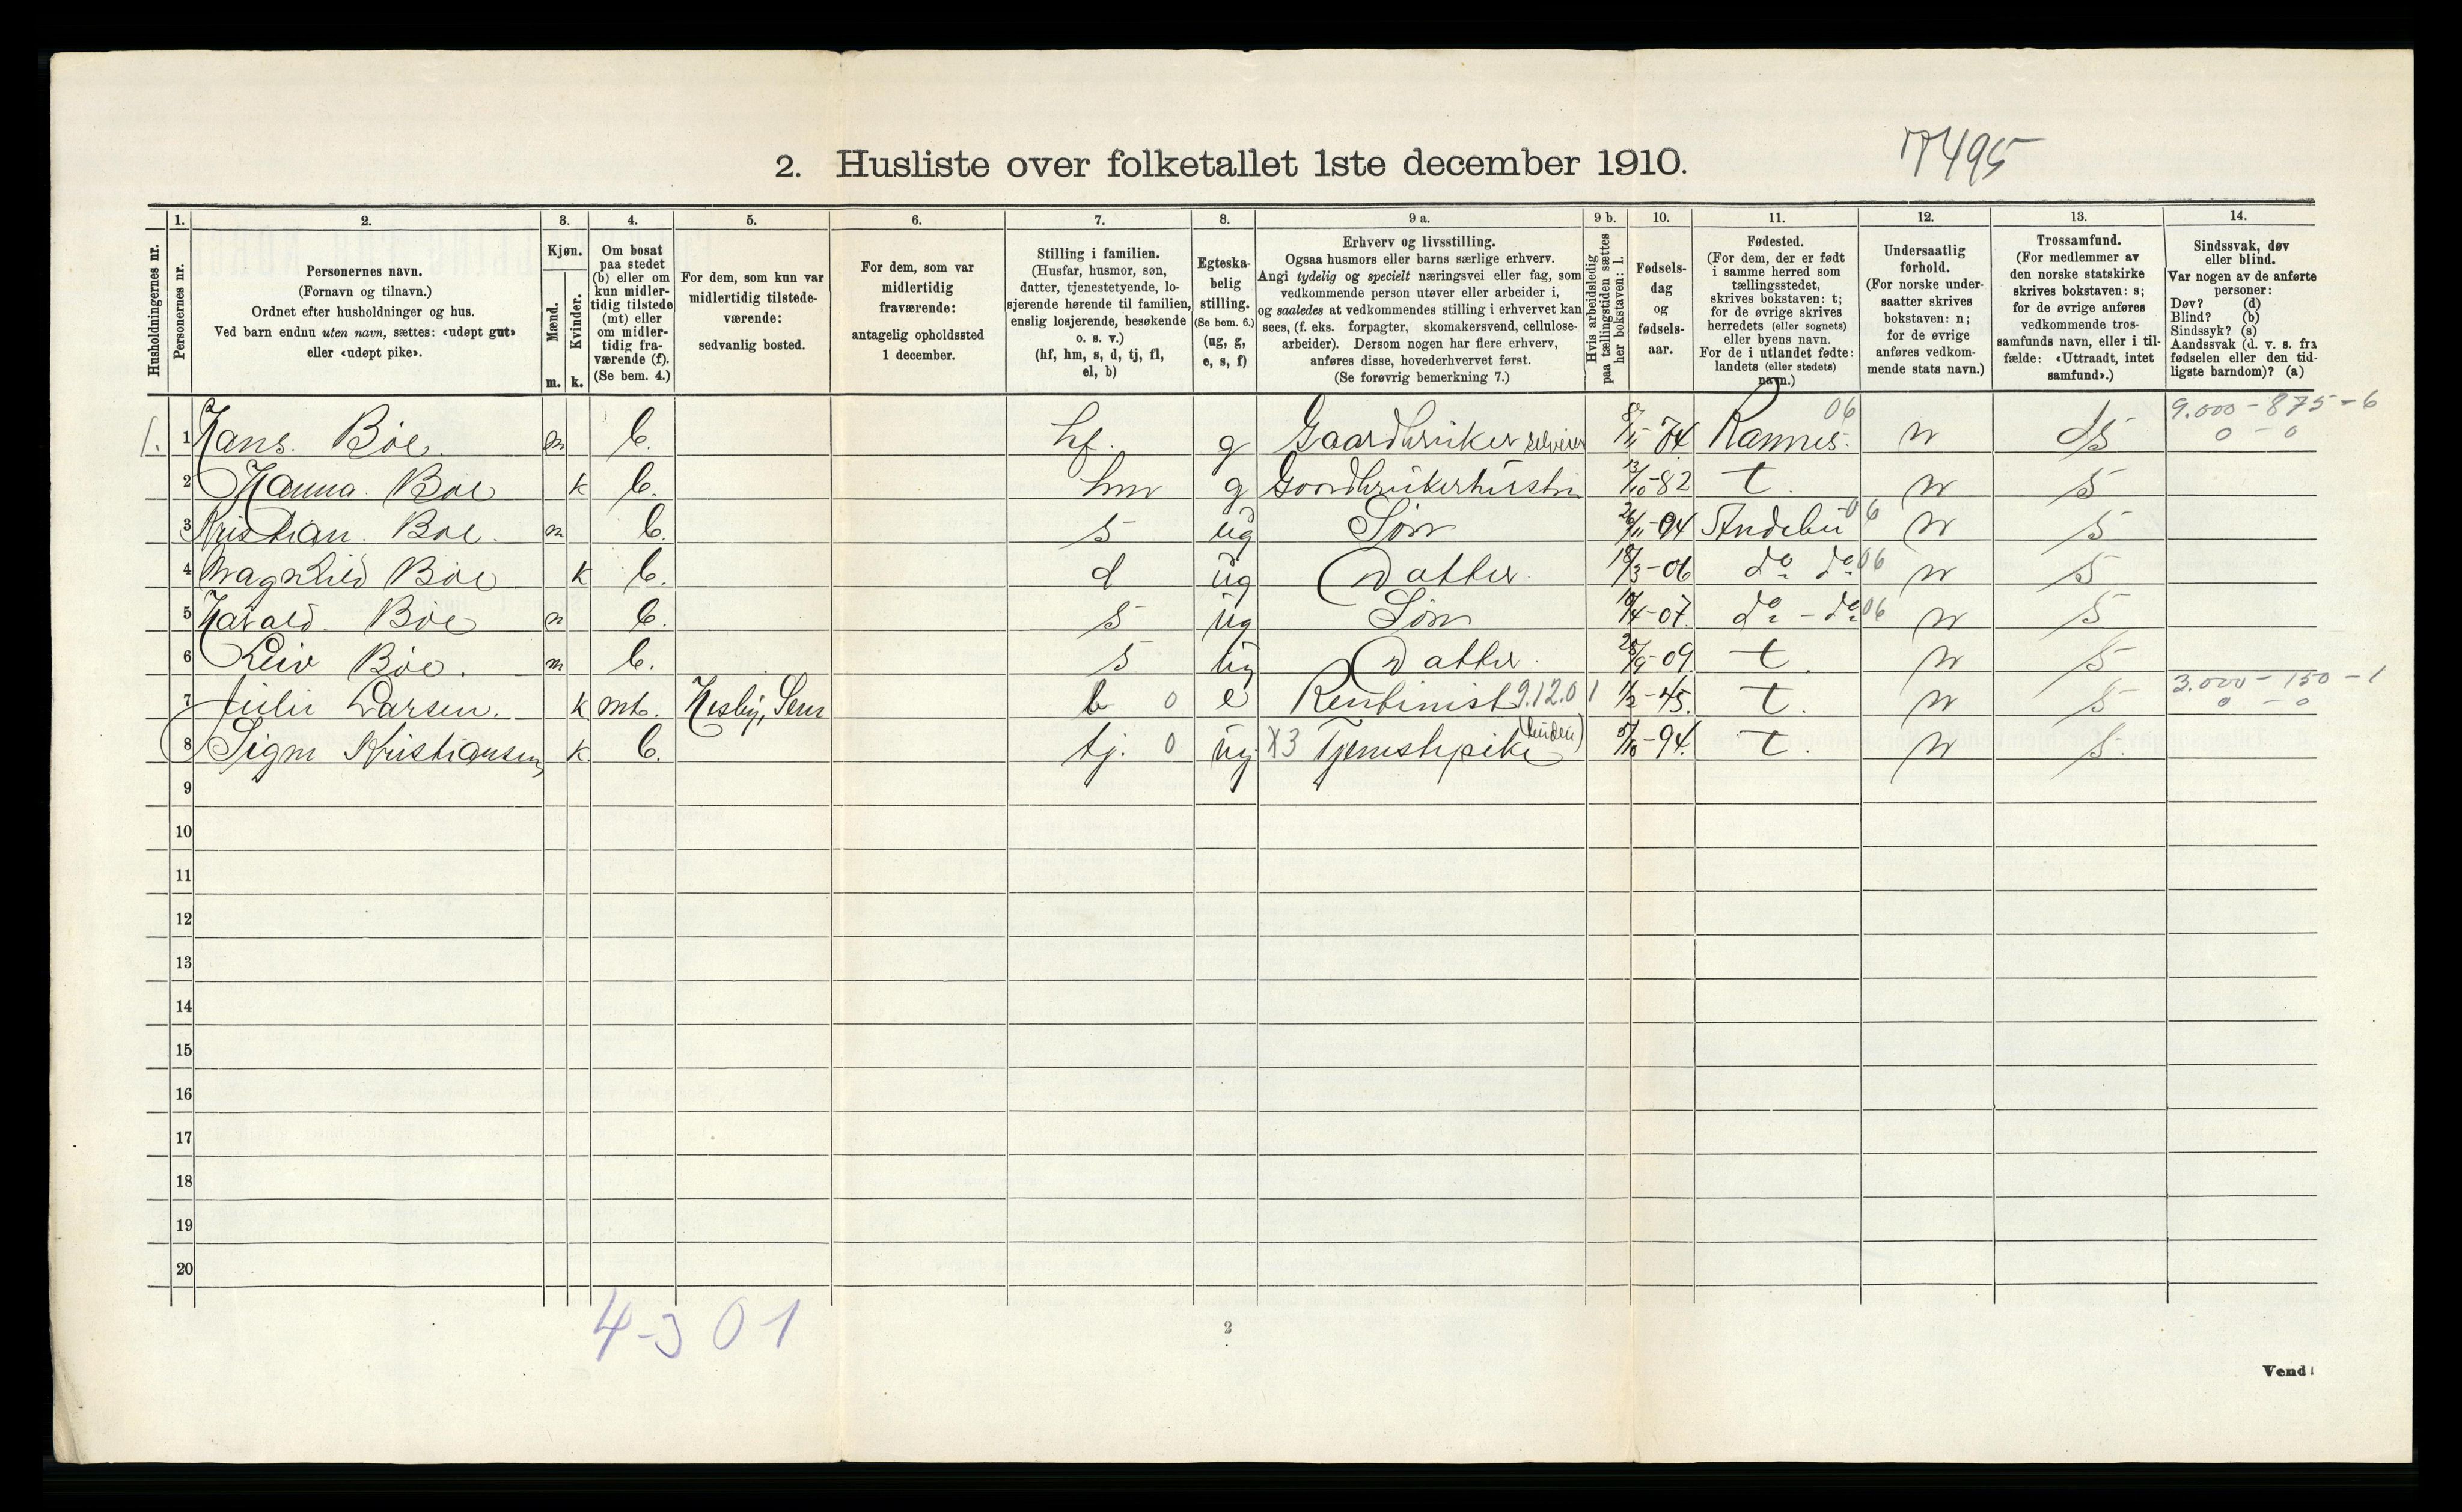 2. Husliste over folketallet 1ste december 1910.
7495
Husholdningernes nr.
1. Personernes nr.
2. Personernes navn. (Fornavn og tilnavn.) Ordnet efter husholdninger og hus. Ved barn endnu uten navn, sættes: «udøpt gut» eller «udøpt pike».
3. Kjøn. Mænd. m. Kvinder. k.
4. Om bosat paa stedet (b) eller om kun midlertidig tilstede (mt) eller om midlertidig fraværende (f). (Se bem. 4.)
5. For dem, som kun var midlertidig tilstedeværende: sedvanlig bosted.
6. For dem, som var midlertidig fraværende: antagelig opholdssted 1 december.
7. Stilling i familien. (Husfar, husmor, søn, datter, tjenestetyende, losjerende hørende til familien, enslig losjerende, besøkende o. s. v.) (hf, hm, s, d, tj, fl, el, b)
8. Egteskabelig stilling. (Se bem. 6.) (ug, g, e, s, f)
9 a. Erhverv og livsstilling. Ogsaa husmors eller barns særlige erhverv. Angi tydelig og specielt næringsvei eller fag, som vedkommende person utøver eller arbeider i, og saaledes at vedkommendes stilling i erhvervet kan sees, (f. eks. forpagter, skomakersvend, cellulosearbeider). Dersom nogen har flere erhverv, anføres disse, hovederhvervet først. (Se forøvrig bemerkning 7.)
9 b. Hvis arbeidsledig paa tællingstiden sættes her bokstaven: l.
10. Fødselsdag og fødselsaar.
11. Fødested. (For dem, der er født i samme herred som tællingsstedet, skrives bokstaven: t; for de øvrige skrives herredets (eller sognets) eller byens navn. For de i utlandet fødte: landets (eller stedets) navn.)
12. Undersaatlig forhold. (For norske undersaatter skrives bokstaven: n; for de øvrige anføres vedkommende stats navn.)
13. Trossamfund. (For medlemmer av den norske statskirke skrives bokstaven: s; for de øvrige anføres vedkommende trossamfunds navn, eller i tilfælde: «Uttraadt, intet samfund».)
14. Sindssvak, døv eller blind. Var nogen av de anførte personer: Døv? (d) Blind? (b) Sindssyk? (s) Aandssvak (d. v. s. fra fødselen eller den tidligste barndom)? (a)
1. 1 Hans Bøe m b. hf. g Gaardbruker selveier 8/11-74 Ramnes 06 n s 9.000-875-6 0-0
2 Hanna Bøe k b. hm g Gaardbrukerhustru 13/10-82 t. n s
3 Kristian Bøe m b. s ug Søn 26/11-04 Andebu 06 n s
4 Magnhild Bøe k b. d ug Datter 18/3-06 do do 06 n s
5 Harald Bøe m b. s ug Søn 19/4-07 do - do 06 n s
6 Leiv Bøe. m b. s ug Datter 25/9-09 t. n s
7 Julie Larsen. k mt. Hesby, Sem b 0 e Rentinist 9.12.01 1/2-45. t. n s 3.000-150-1 0-0
8 Signe Kristiansen k b. tj. 0 ug X3 Tjenestepike 5/10-94. t. n s.
9
10
11
12
13
14
15
16
17
18
19
20
4-3 0 1
2
Vend!